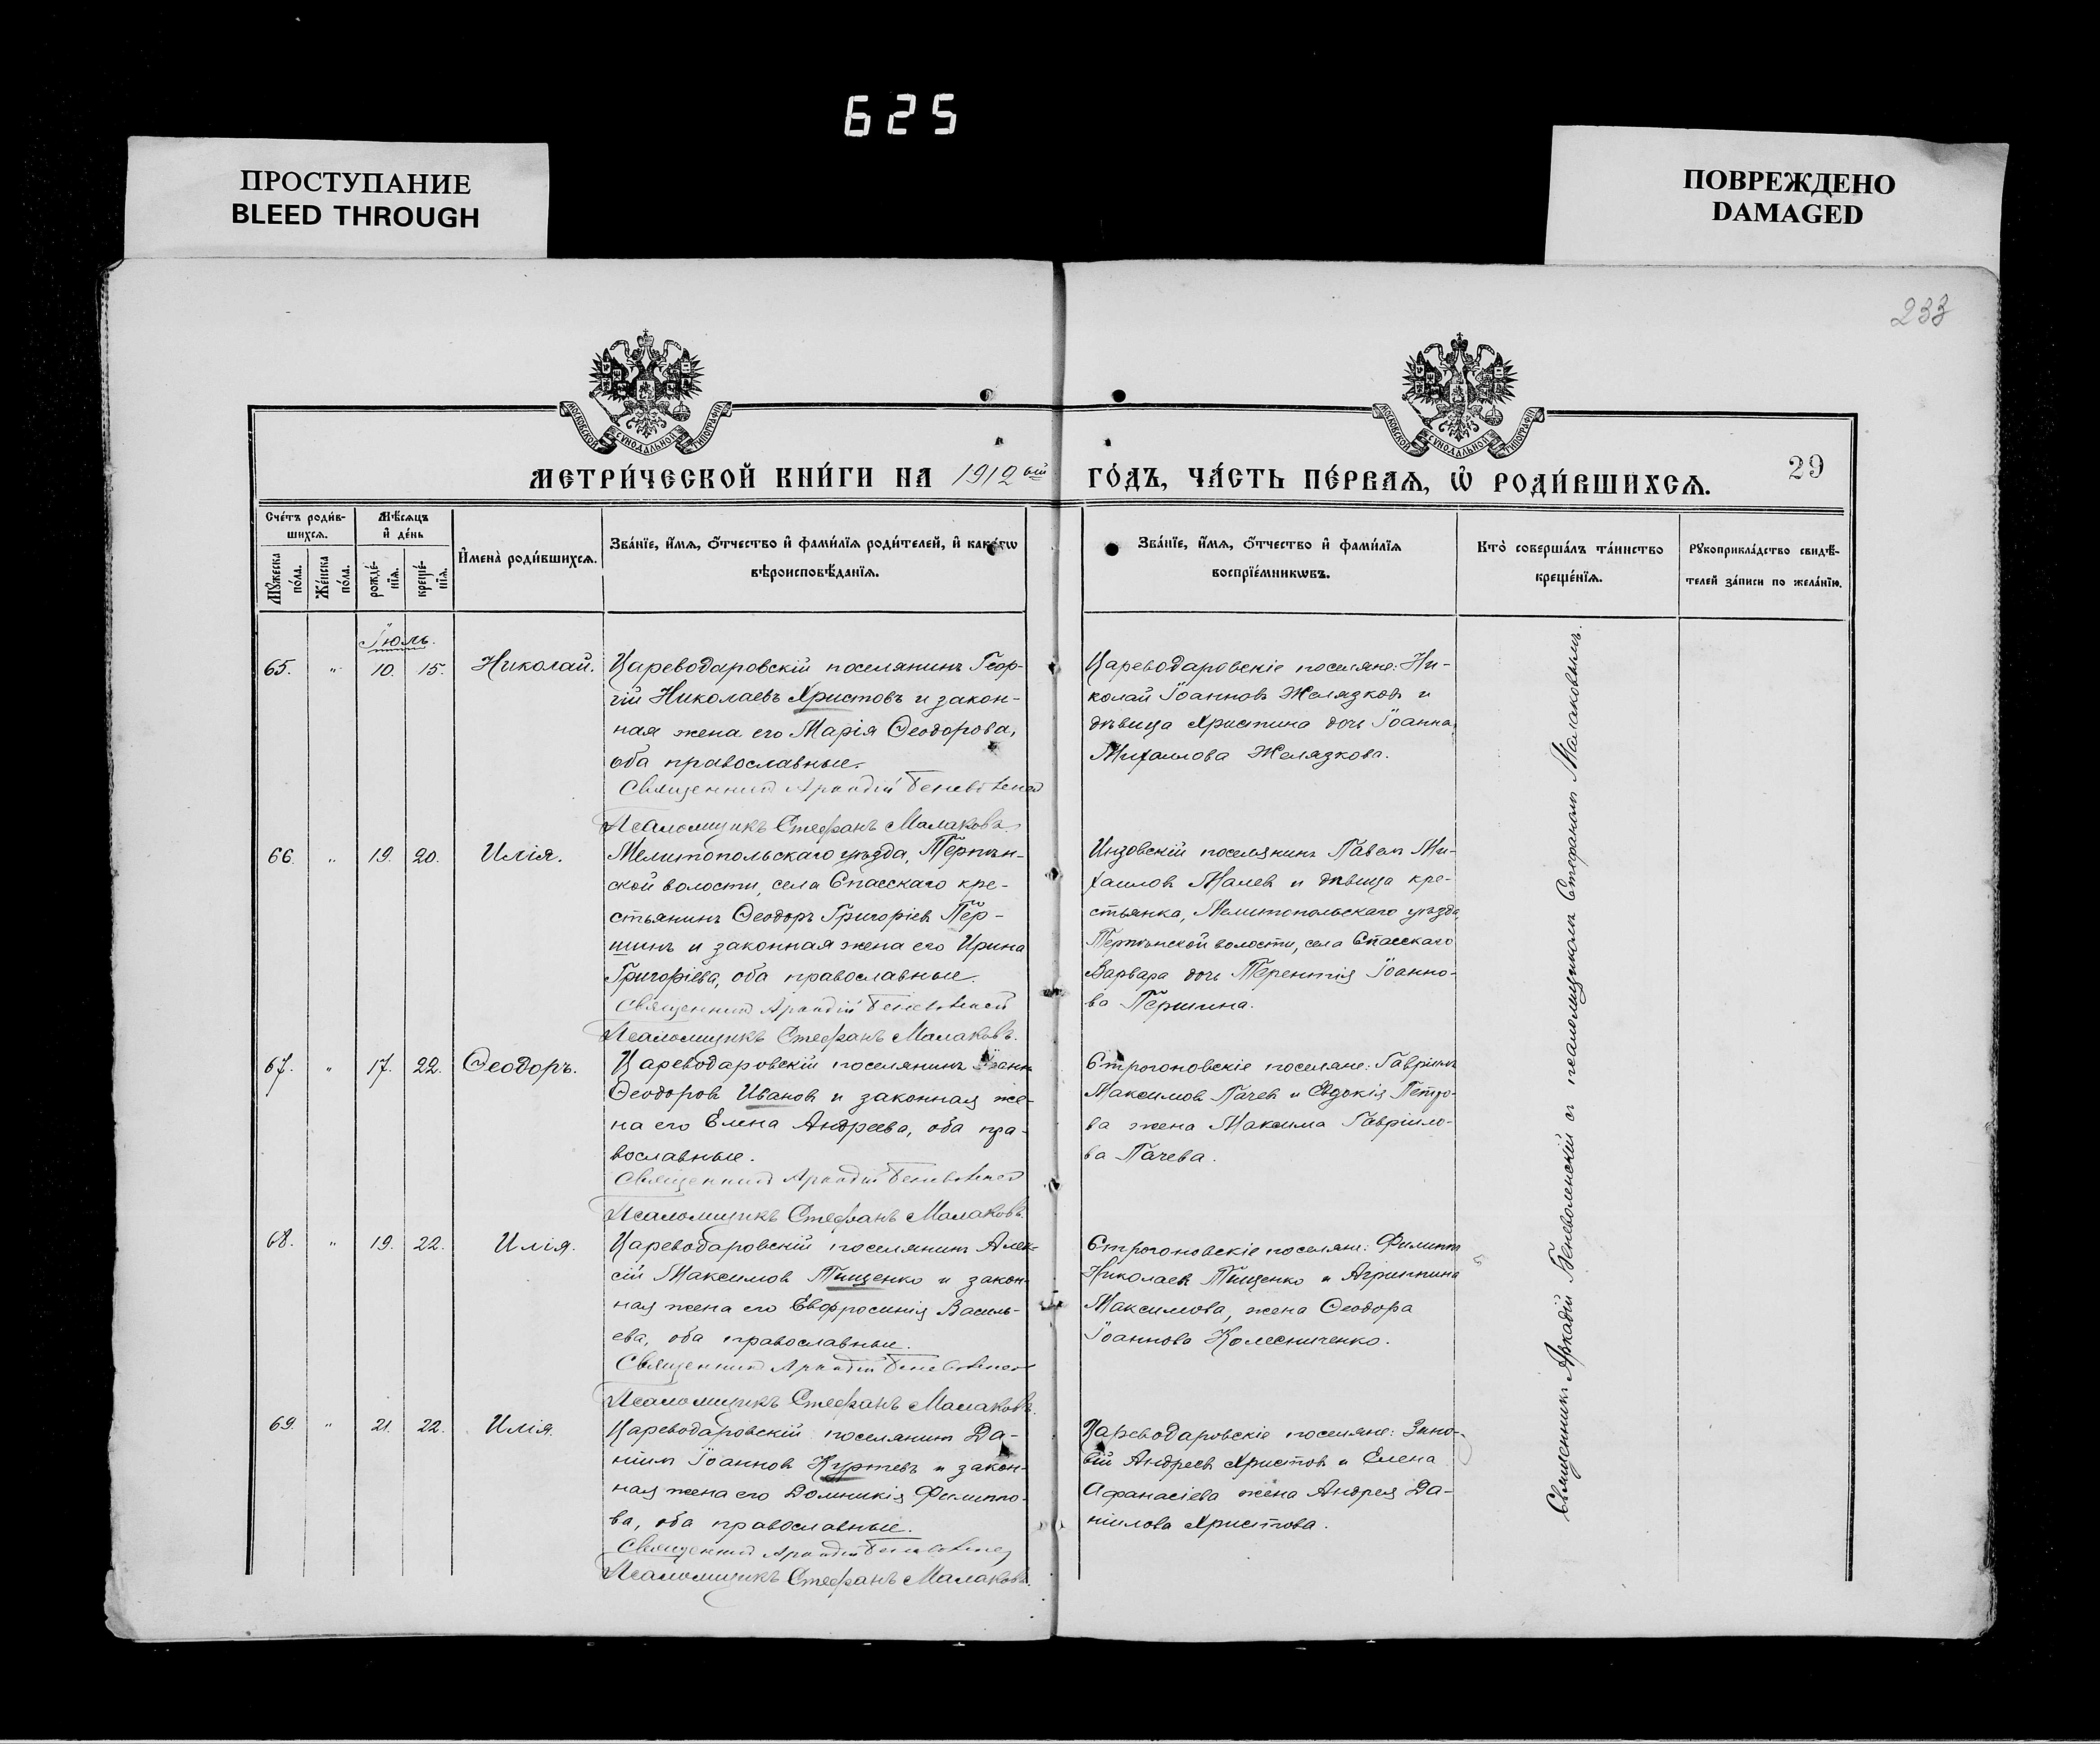 625
ПРОСТУПАНИЕ
BLEED THROUGH
ПОВРЕЖДЕНО
DAMAGED
233
МОСКОВСКОЙ СѴНОДАЛЬНОЙ ТИПОГРАФІИ
МОСКОВСКОЙ СѴНОДАЛЬНОЙ ТИПОГРАФІИ
МЕТРИ́ЧЕСКОЙ КНИ́ГИ НА 1912 ый ГО́ДЪ, ЧА́СТЬ ПЕ́РВАѦ, Ѡ҆ РОДИ́ВШИХСѦ.
29
Сче́тъ роди́в-
шихсѧ.
Мꙋ́жеска
по́ла.
Же́нска
по́ла.
Мѣ́сѧцъ
и҆ де́нь
рожде́-
нїѧ.
креще́-
нїѧ.
И҆мена̀ роди́вшихсѧ.
Зва́нїе, и҆́мѧ, ѻ҆́тчество и҆ фами́лїѧ роди́телей, и҆ како́гѡ
вѣроисповѣ́данїѧ.
Зва́нїе, и҆́мѧ, ѻ҆́тчество и҆ фами́лїѧ
воспрїе́мникѡвъ.
Кто̀ соверша́лъ та́инство
креще́нїѧ.
Рꙋкоприкла́дство свидѣ́-
телей за́писи по жела́нїю.
Іюль.
65. " 10. 15. Николай.
Цареводаровскій поселянинъ Геор-
гій Николаевъ Христовъ и закон-
ная жена его Марія Ѳеодорова,
оба православные.
Священникъ Аркадій Беневоленскій
Псаломщикъ Стефанъ Малаковъ.
Цареводаровскіе поселяне: Ни-
колай Іоанновъ Желязковъ и
дѣвица Христина дочь Іоанна
Михаилова Желязкова.
66. " 19. 20. Илія.
Мелитопольскаго уѣзда, Терпѣн-
ской волости, села Спасскаго кре-
стьянинъ Ѳеодоръ Григоріевъ Пер-
шинъ и законная жена его Ирина
Григоріева, оба православные.
Священникъ Аркадій Беневоленскій
Псаломщикъ Стефанъ Малаковъ.
Инзовскій поселянинъ Павелъ Ми-
хаиловъ Малевъ и дѣвица кре-
стьянка, Мелитопольскаго уѣзда,
Терпѣнской волости, села Спасскаго
Варвара дочь Терентія Іоанно-
ва Першина.
67. " 17. 22. Ѳеодоръ.
Цареводаровскій поселянинъ Іоаннъ
Ѳеодоровъ Ивановъ и законная же-
на его Елена Андреева, оба пра-
вославные.
Священникъ Аркадій Беневоленскій
Псаломщикъ Стефанъ Малаковъ.
Строгоновскіе поселяне: Гавріилъ
Максимовъ Пачевъ и Евдокія Петро-
ва жена Максима Гавріило-
ва Пачева.
68. " 19. 22. Илія.
Цареводаровскій поселянинъ Алек-
сій Максимовъ Тищенко и закон-
ная жена его Евфросинія Василь-
ева, оба православные.
Священникъ Аркадій Беневоленскій
Псаломщикъ Стефанъ Малаковъ.
Строгоновскіе поселяне: Филиппъ
Николаевъ Тищенко и Агриппина
Максимова, жена Ѳеодора
Іоаннова Колесниченко.
69. " 21. 22. Илія.
Цареводаровскій поселянинъ Да-
ніилъ Іоанновъ Куртевъ и закон-
ная жена его Домникія Филиппо-
ва, оба православные.
Священникъ Аркадій Беневоленскій
Псаломщикъ Стефанъ Малаковъ.
Цареводаровскіе поселяне: Зино-
вій Андреевъ Христовъ и Елена
Афанасіева жена Андрея Да-
ніилова Христова.
Священникъ Аркадій Беневоленскій съ псаломщикомъ Стефаномъ Малаковымъ.